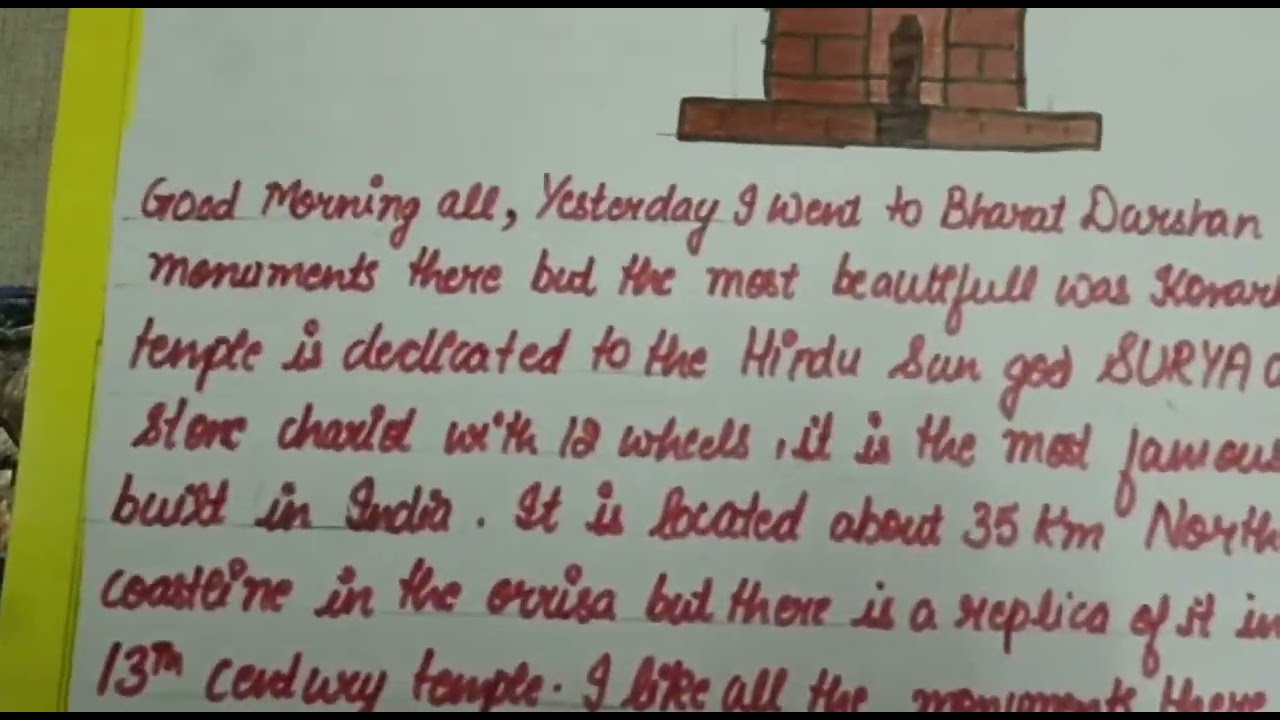 Good Morning all, Yesterday I went to Bharat Darshan
monuments there but the most beautifull was Konark
temple is dedicated to the Hindu Sun god SURYA
stone chariot with 12 wheels, it is the most famous
built in India. It is located about 35 Km North
coastline in the orrisa but there is a replica of it in
13th century temple. I like all the monuments there